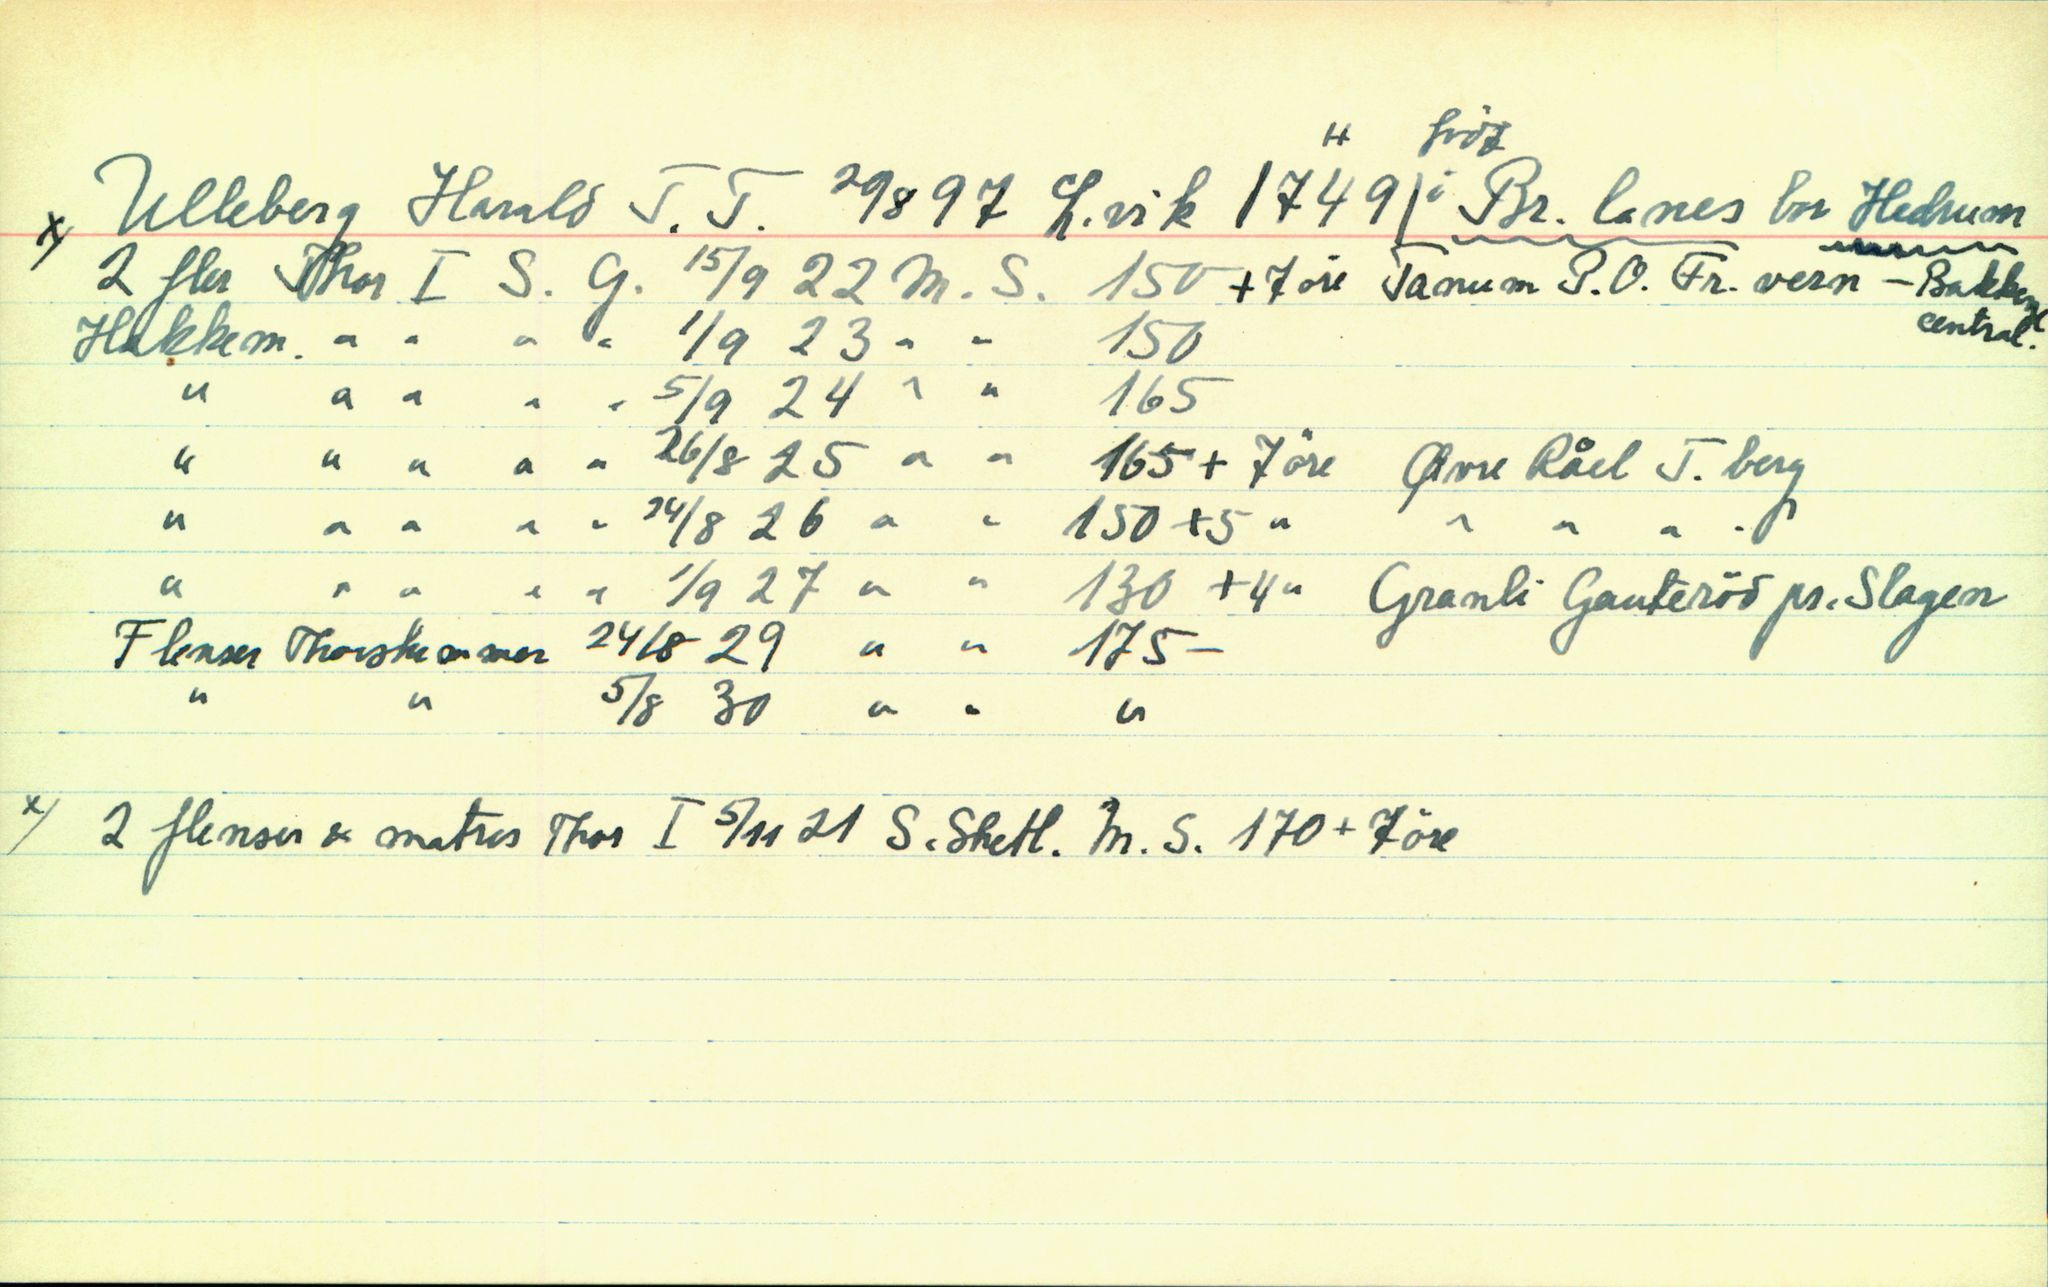 H
x) Ulleberg Harald T. T. 29/8 97 L.vik 1749 i Br. lanes bor Hedrum
2 fler Thor I S. G. 15/9 22 M. S. 150 + 7 öre Tanum P.O. Fr. vern - Bakken
central.
Hakkem. " " " " 1/9 23 " " 150
" " " " " 5/9 24 " " 165
" " " " " 26/8 25 " " 165 + 7 öre Øvre Råel T. berg
" " " " " 24/8 26 " " 150 + 5 " " " " "
" " " " " 1/9 27 " " 130 + 4 " Granli Gauteröd pr. Slagen
Flenser Thorshammer 24/8 29 " " 175 -
" " 5/8 30 " " "
x) 2 flenser & matros Thor I 5/11 21 S. Shetl. M. S. 170 + 7 öre